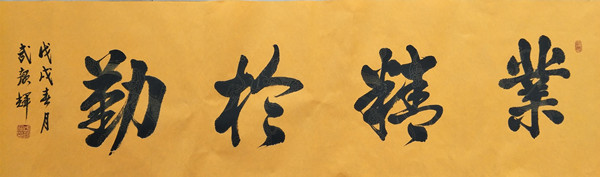 業精於勤
戊戌春月
武彥輝